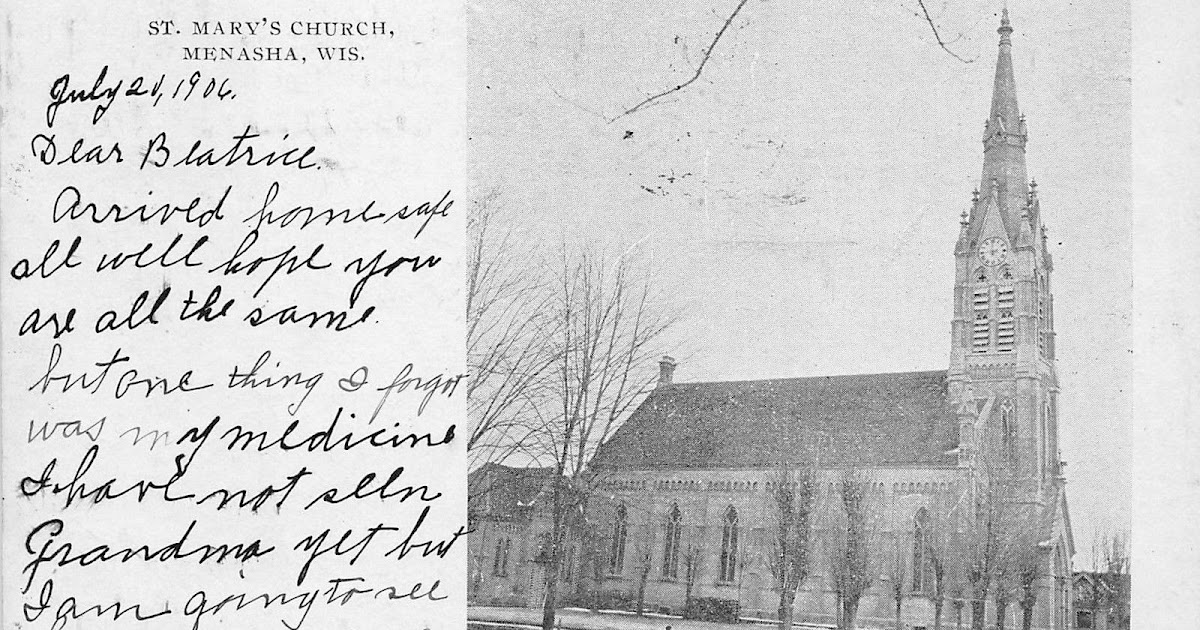 ST. MARY'S CHURCH,
MENASHA, WIS.
July 21, 1906.
Dear Beatrice.
Arrived home safe
all well hope you
are all the same.
but one thing I forgot
was my medicine
I have not seen
Grandma yet but
I am going to see